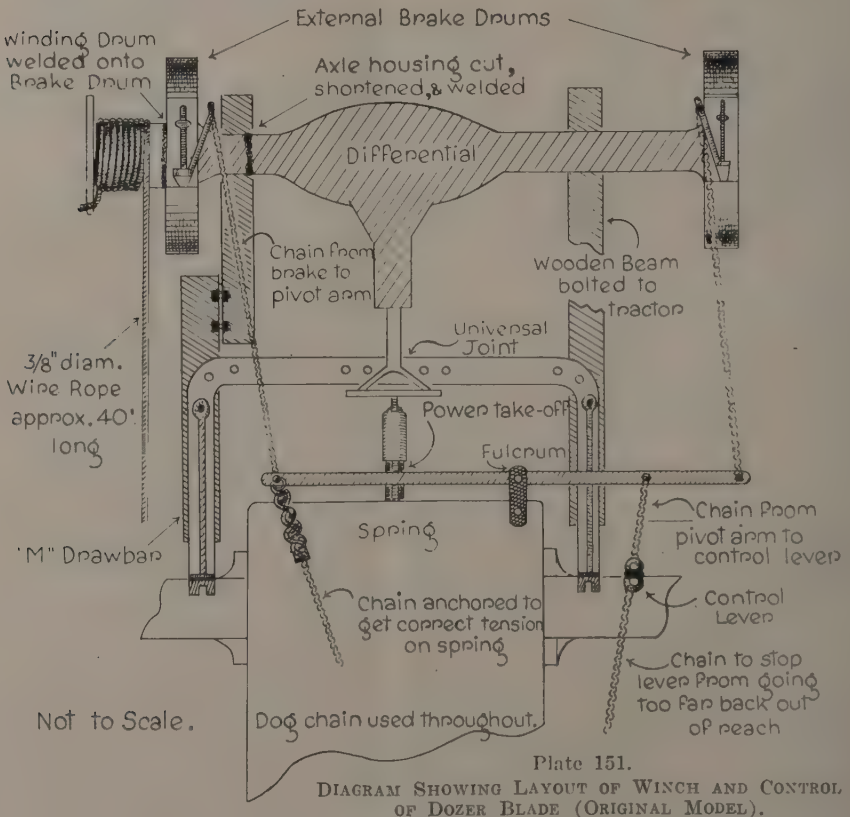 External Brake Drums
Winding Drum
welded onto
Brake Drum
Axle housing cut,
shortened, & welded
Differential
Chain from
brake to
pivot arm
Wooden Beam
bolted to
tractor
Universal
Joint
3/8" diam.
Wire Rope
approx. 40'
long
Power take-off
Fulcrum
Spring
Chain from
pivot arm to
control lever
"M" Drawbar
Chain anchored to
get correct tension
on spring
Control
Lever
Chain to stop
lever from going
too far back out
of reach
Not to Scale.
Dog chain used throughout.
Plate 151.
Diagram Showing Layout of Winch and Control
of Dozer Blade (Original Model).